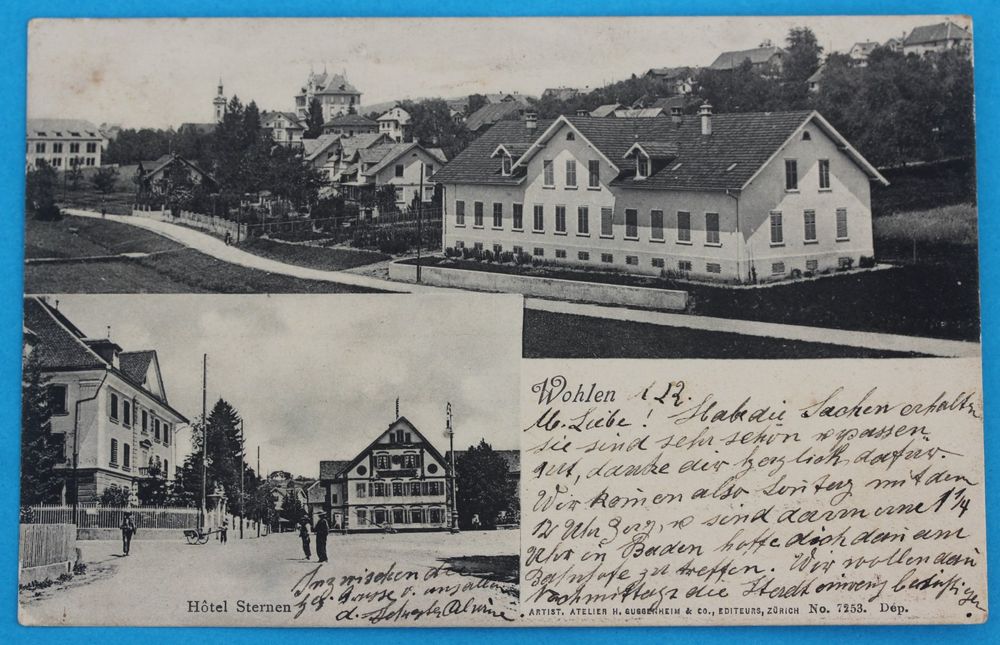 Wohlen 1 22.
M. Liebe! Habe die Sachen erhalten
sie sind sehr schön u passen
gut, danke dir herzlich dafür.
Wir komen also Sontag mit dem
12 Uhr Zorg, u sind dann eine 1 1/4
Uhr in Baden hoffe dich dan am
Bahnhofe zu treffen. Wir wollen dan
Nachmittags die Stadt einweng besichtigen
Inzwischen die
herz. Grüsse v. uns allen
d. Schwester Alwine
Hôtel Sternen
ARTIST. ATELIER H. GUGGENHEIM & CO., EDITEURS, ZÜRICH No. 7253. Dép.